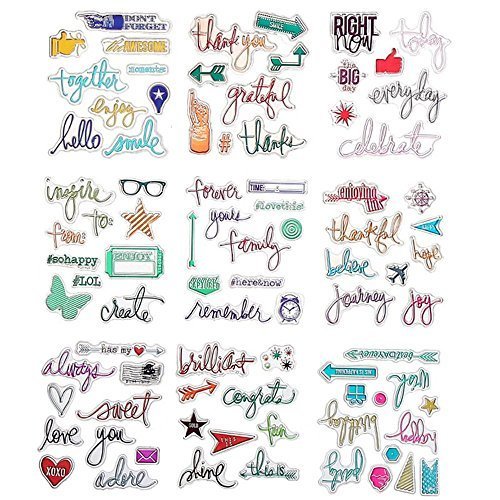 DON'T
FORGET
AWESOME
together
moments
enjoy
hello
smile
thank you
SMILE
grateful
#
thanks
RIGHT
NOW
today
the
BIG
day
everyday
celebrate
inspire
to:
from:
#sohappy
ENJOY
#LOL
create
forever
TIME:
#lovethis!
yours
family
#here&now
remember
enjoying
thankful
hope
believe
journey
joy
has my
always
sweet
love you
XOXO
adore
brilliant
congrats
fun
shine
this is